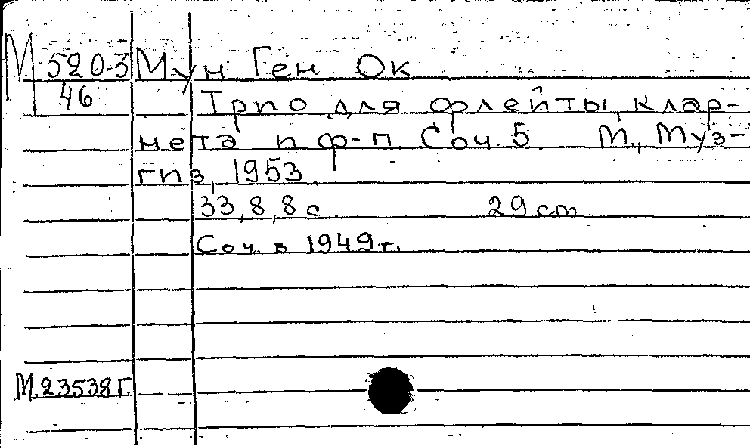 М 520-3 Мун Ген Ок
46 Трио для флейты, клар-
нета и ф-п. Соч. 5. М., Муз-
гиз, 1953.
33, 8, 8 с. 29 cm
Соч. в 1949 г.
М.23538 Г.